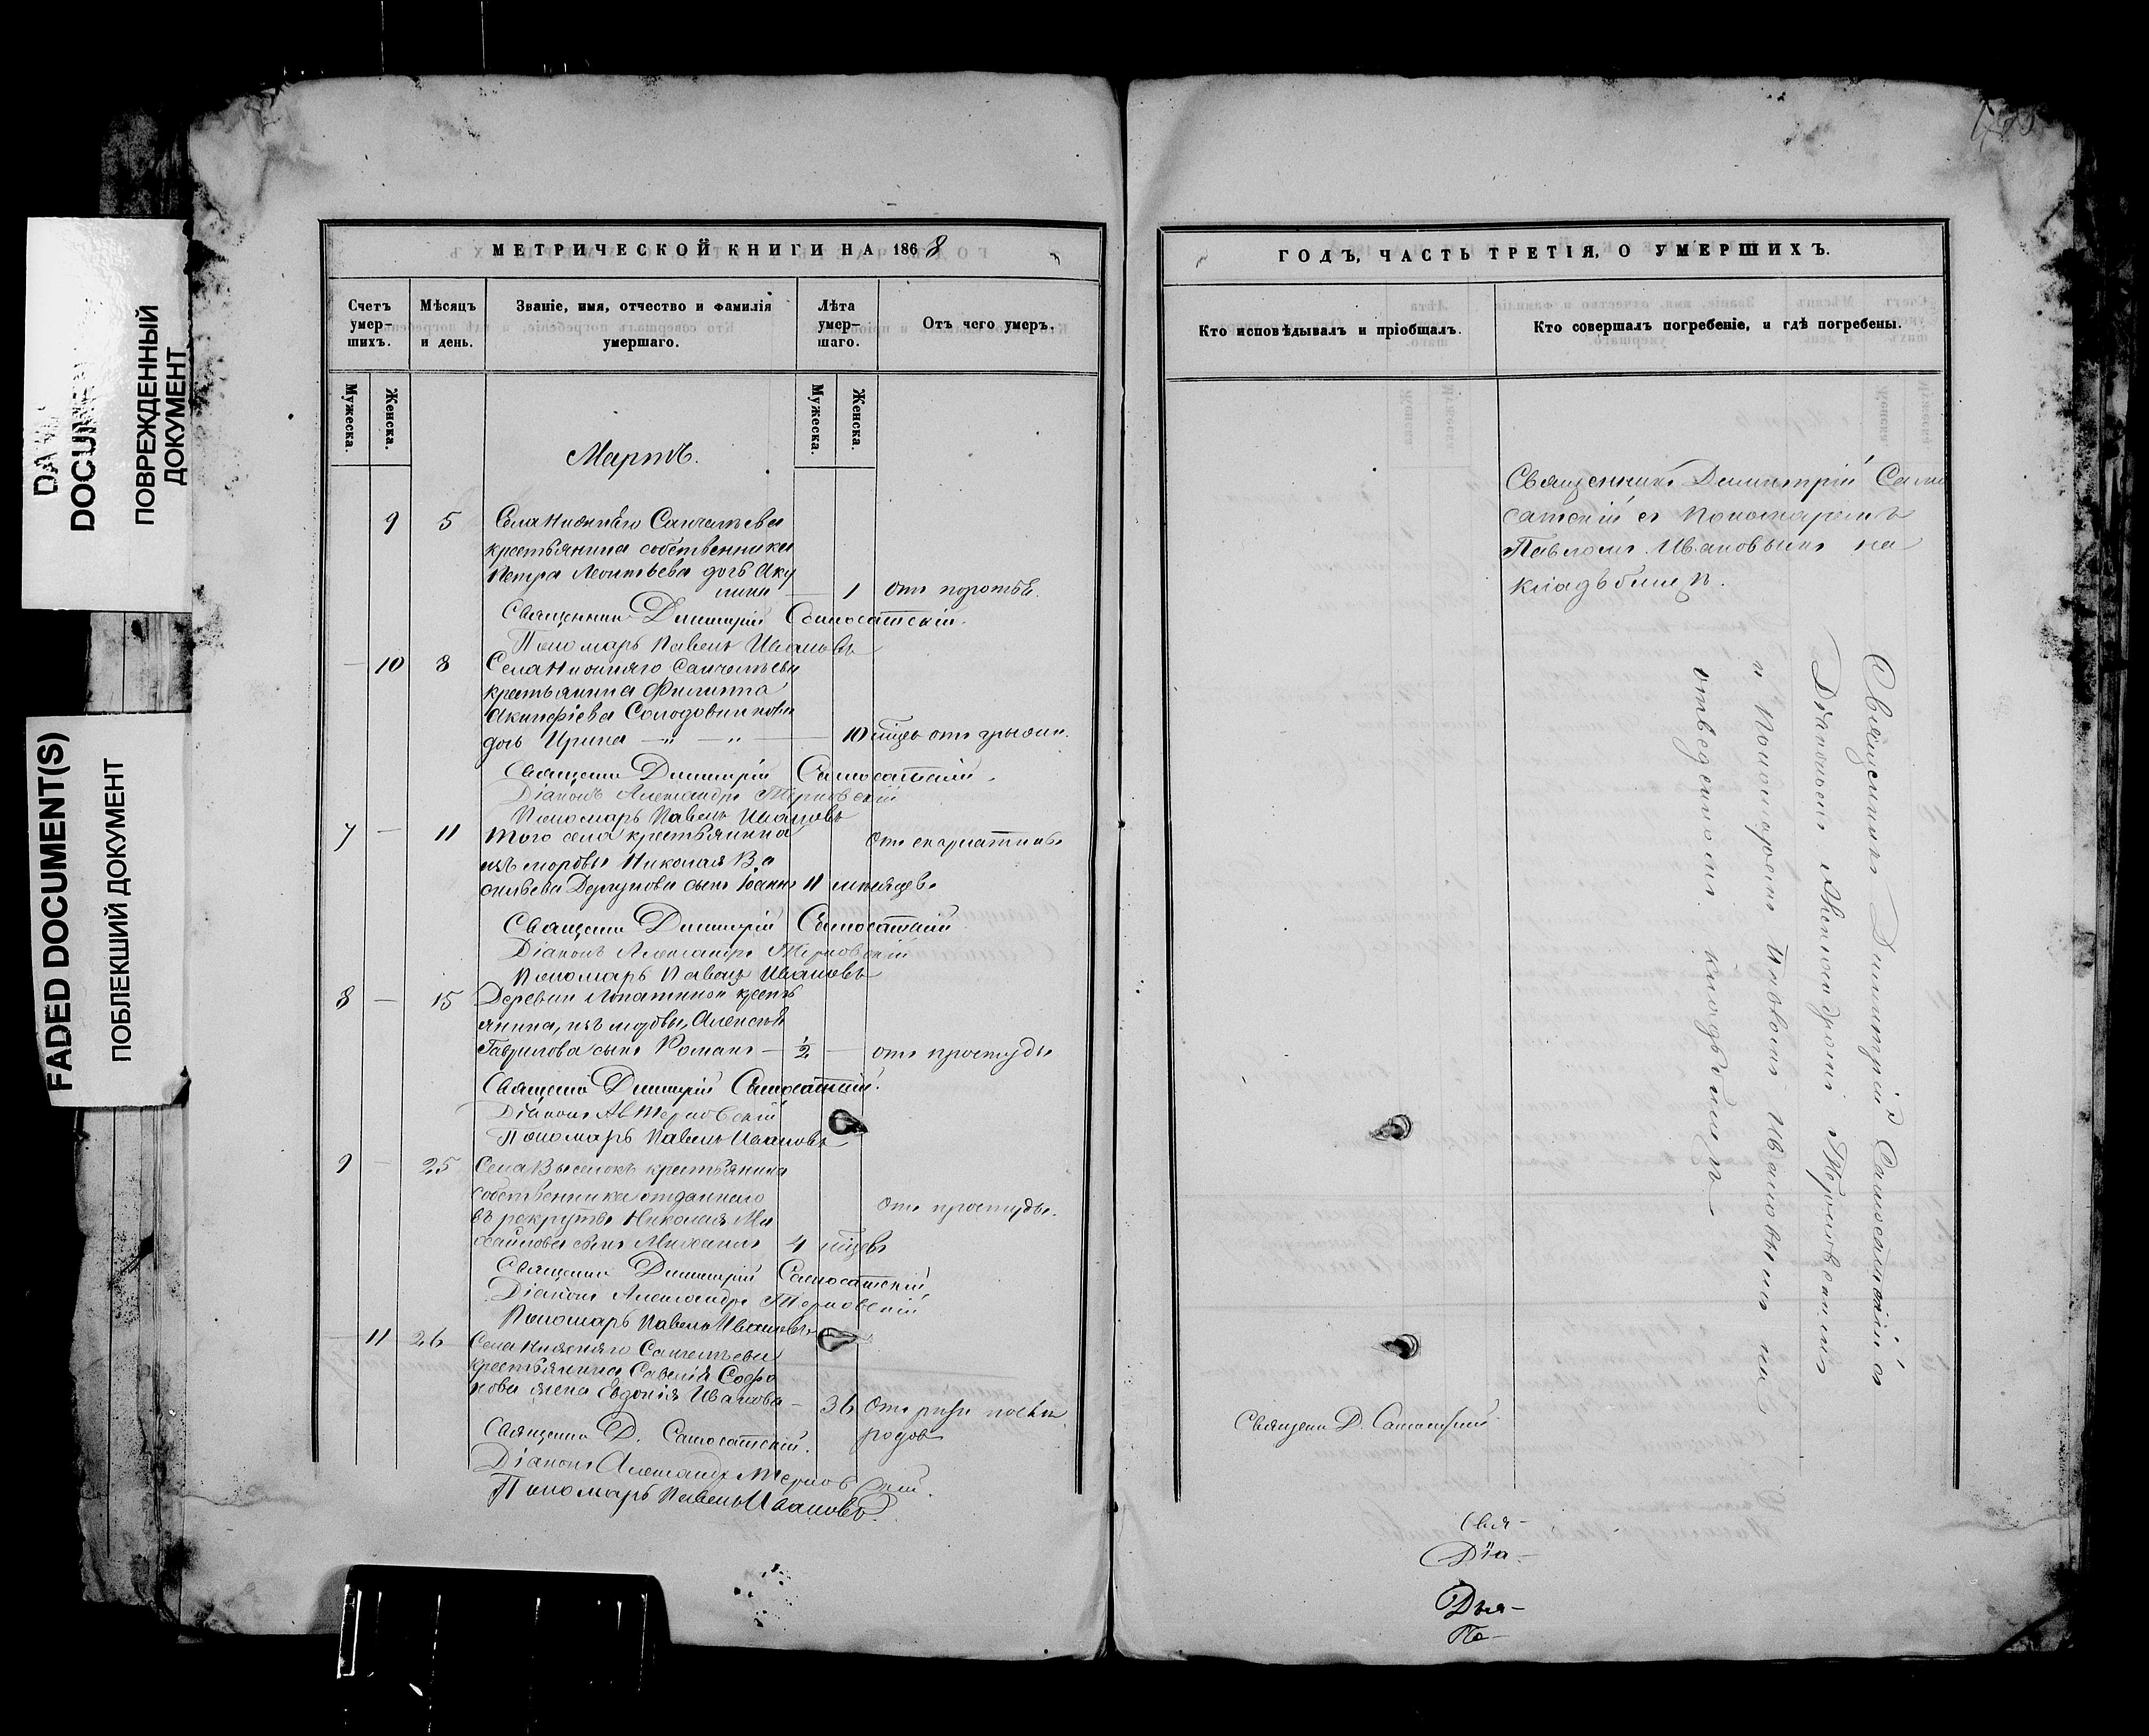 DOCUMENT
ПОВРЕЖДЕННЫЙ
ДОКУМЕНТ
FADED DOCUMENT(S)
ПОБЛЕКШИЙ ДОКУМЕНТ
МЕТРИЧЕСКОЙ КНИГИ НА 1868
Счетъ умер-шихъ.
Мѣсяцъ и день.
Званіе, имя, отчество и фамилія умершаго.
Лѣта умер-шаго.
Отъ чего умеръ.
Мужеска.
Женска.
Мужеска.
Женска.
Мартъ.
9 5 Села Нижняго Санчелѣева
крестьянина собственника
Петра Леонтьева дочь Аку
лина — 1 отъ
Священникъ Димитрій Самосатскій.
Пономарь Павелъ Ивановъ
— 10 8 Села Нижняго Санчелѣева
крестьянина Филиппа
Акинфіева Солодовникова
дочь Ирина — " — " — 10 мѣсяцевъ отъ грыжи.
Священникъ Димитрій Самосатскій.
Діаконъ Александръ Терновскій
Пономарь Павелъ Ивановъ
7 — 11 Того села крестьянина
изъ мордвы Николая Ва
сильева сынъ Іоаннъ 11 мѣсяцевъ
отъ скарлатины
Священникъ Димитрій Самосатскій
Діаконъ Александръ Терновскій
Пономарь Павелъ Ивановъ
8 — 15 Деревни Лопатиной кресть
янина, изъ мордвы, Алексѣя
Гаврилова сынъ Романъ — 1/2 — отъ простуды
Священникъ Димитрій Самосатскій.
Діаконъ Ал Терновскій
Пономарь Павелъ Ивановъ
9 — 25 Села Выселокъ крестьянина
собственника отданнаго
въ рекруты Николая Ми
хайлова сынъ Михаилъ 4 мѣсяцевъ
отъ простуды.
Священникъ Димитрій Самосатскій,
Діаконъ Александръ Терновскій
Пономарь Павелъ Ивановъ
— 11 26 Села Нижняго Санчелѣева
крестьянина Савелія Софро
нова жена Евдокія Иванова — 36 отъ послѣ
родовъ
Священникъ Д. Самосатскій.
Діаконъ Александръ Терновскій.
Пономарь Павелъ Ивановъ.
ГОДЪ, ЧАСТЬ ТРЕТІЯ, О УМЕРШИХЪ.
Кто исповѣдывалъ и пріобщалъ.
Кто совершалъ погребеніе, и гдѣ погребены.
Священникъ Димитрій Само
сатскій съ Пономаремъ
Павломъ Ивановымъ на
кладбищѣ.
Священникъ Димитрій Самосатскій съ
Діакономъ Александромъ Терновскимъ
и Пономаремъ Павломъ Ивановымъ на
отведенномъ кладбищѣ
Священникъ Д. Самосатскій
Свя-
Діа-
Дья-
По-